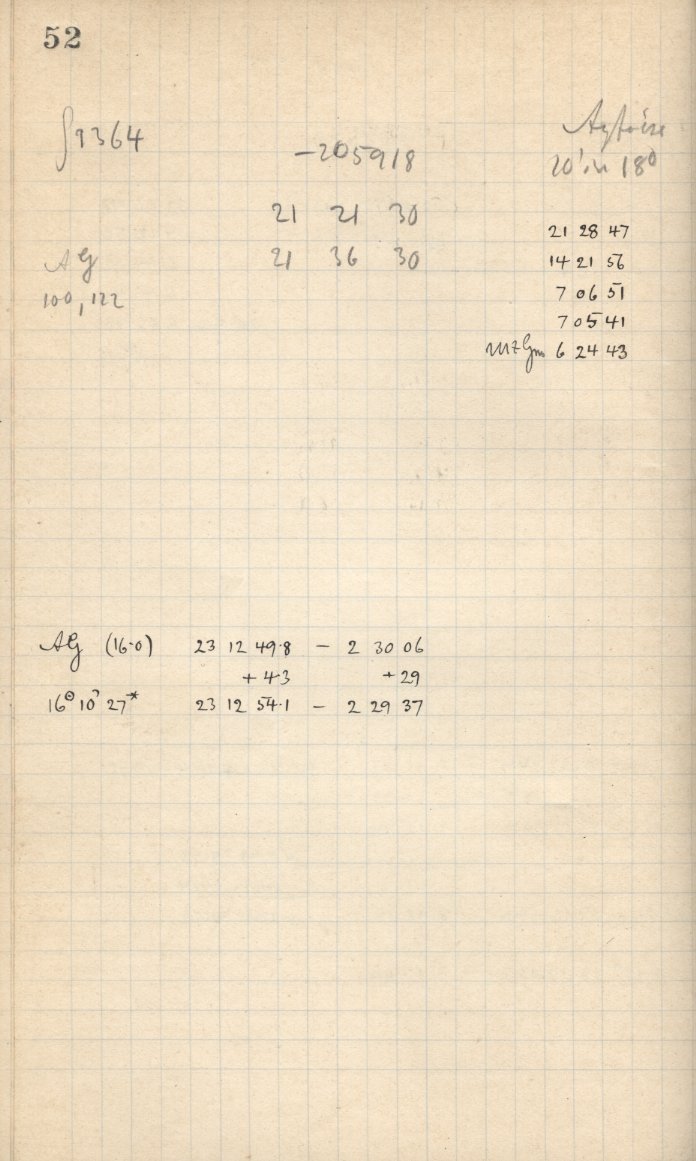 52
∫1364
-205918
21 21 30
AG 21 36 30
100,122
20' in 18°
21 28 47
14 21 56
7 06 51
7 05 41
6 24 43
AG (16.0) 23 12 49.8 - 2 30 06
+ 4.3 + 29
23 12 54.1 - 2 29 37